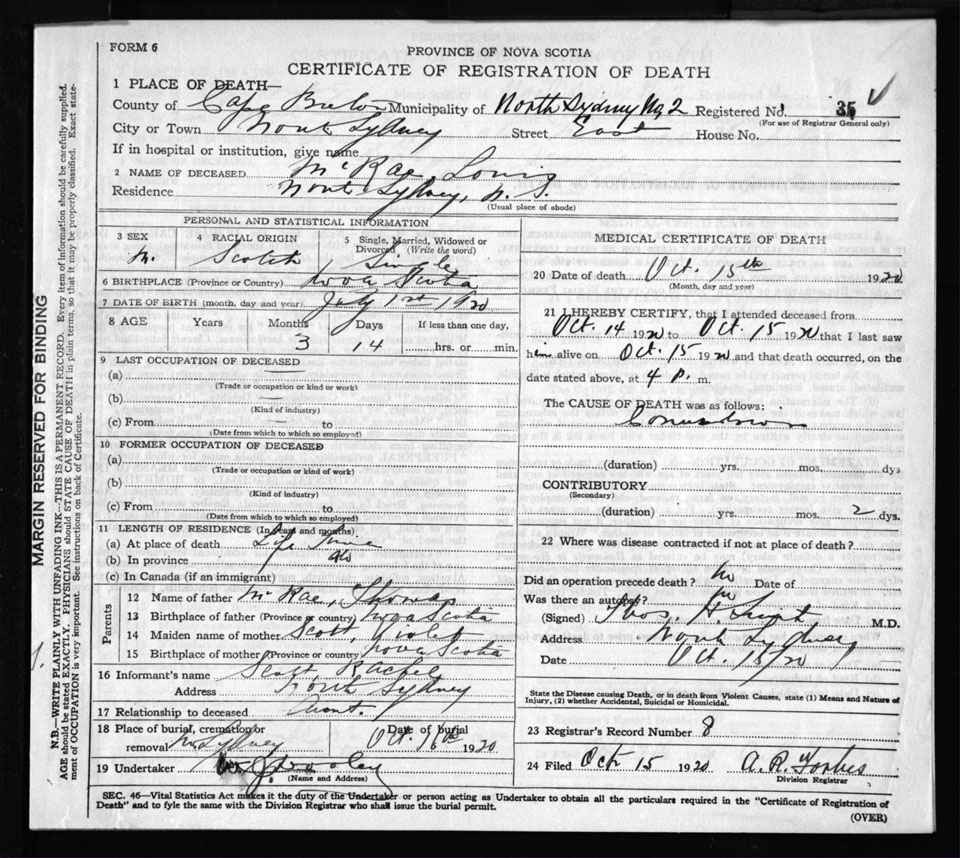 FORM 6
PROVINCE OF NOVA SCOTIA
CERTIFICATE OF REGISTRATION OF DEATH
1 PLACE OF DEATH—
County of Cape Breton Municipality of North Sydney No 2 Registered No. 35
(For use of Registrar General only)
City or Town North Sydney Street East House No.
If in hospital or institution, give name
2 NAME OF DECEASED McRae, Louis
Residence North Sydney, N. S.
(Usual place of abode)
PERSONAL AND STATISTICAL INFORMATION
3 SEX M. 4 RACIAL ORIGIN Scotch 5 Single, Married, Widowed or Divorced (Write the word) Single
6 BIRTHPLACE (Province or Country) Nova Scotia
7 DATE OF BIRTH (month, day and year) July 1st 1920
8 AGE Years Months 3 Days 14 If less than one day, hrs. or min.
9 LAST OCCUPATION OF DECEASED
(a) —
(Trade or occupation or kind or work)
(b) —
(Kind of industry)
(c) From — to
(Date from which to which so employed)
10 FORMER OCCUPATION OF DECEASED
(a)
(Trade or occupation or kind of work)
(b)
(Kind of industry)
(c) From to
(Date from which to which so employed)
11 LENGTH OF RESIDENCE (In years and months)
(a) At place of death Life Time
(b) In province do
(c) In Canada (if an immigrant)
Parents
12 Name of father McRae, Thomas
13 Birthplace of father (Province or country) Nova Scotia
14 Maiden name of mother Scott, Violet
15 Birthplace of mother (Province or country) Nova Scotia
16 Informant's name Scott, Rachel
Address North Sydney
17 Relationship to deceased Aunt.
18 Place of burial, cremation or removal N. Sydney Date of burial Oct. 16th 1920
19 Undertaker
(Name and Address)
MEDICAL CERTIFICATE OF DEATH
20 Date of death Oct. 15th 1920
(Month, day and year)
21 I HEREBY CERTIFY, that I attended deceased from
Oct. 14 1920 to Oct. 15 1920 that I last saw
him alive on Oct. 15 1920 and that death occurred, on the
date stated above, at 4 p. m.
The CAUSE OF DEATH was as follows:
Convulsions
(duration) yrs. mos. dys
CONTRIBUTORY
(Secondary)
(duration) yrs. mos. 2 dys.
22 Where was disease contracted if not at place of death?
Did an operation precede death? No Date of
Was there an autopsy? No
(Signed) Thos. H. M.D.
Address North Sydney
Date Oct. 15/20
State the Disease causing Death, or in death from Violent Causes, state (1) Means and Nature of
Injury, (2) whether Accidental, Suicidal or Homicidal.
23 Registrar's Record Number 8
24 Filed Oct 15 1920 A. R. Forbes
Division Registrar
SEC. 46—Vital Statistics Act makes it the duty of the Undertaker or person acting as Undertaker to obtain all the particulars required in the "Certificate of Registration of
Death" and to fyle the same with the Division Registrar who shall issue the burial permit.
(OVER)
MARGIN RESERVED FOR BINDING
N.B.—WRITE PLAINLY WITH UNFADING INK—THIS IS A PERMANENT RECORD. Every item of information should be carefully supplied.
AGE should be stated EXACTLY. PHYSICIANS should STATE CAUSE OF DEATH in plain terms, so that it may be properly classified. Exact state-
ment of OCCUPATION is very important. See instructions on back of Certificate.